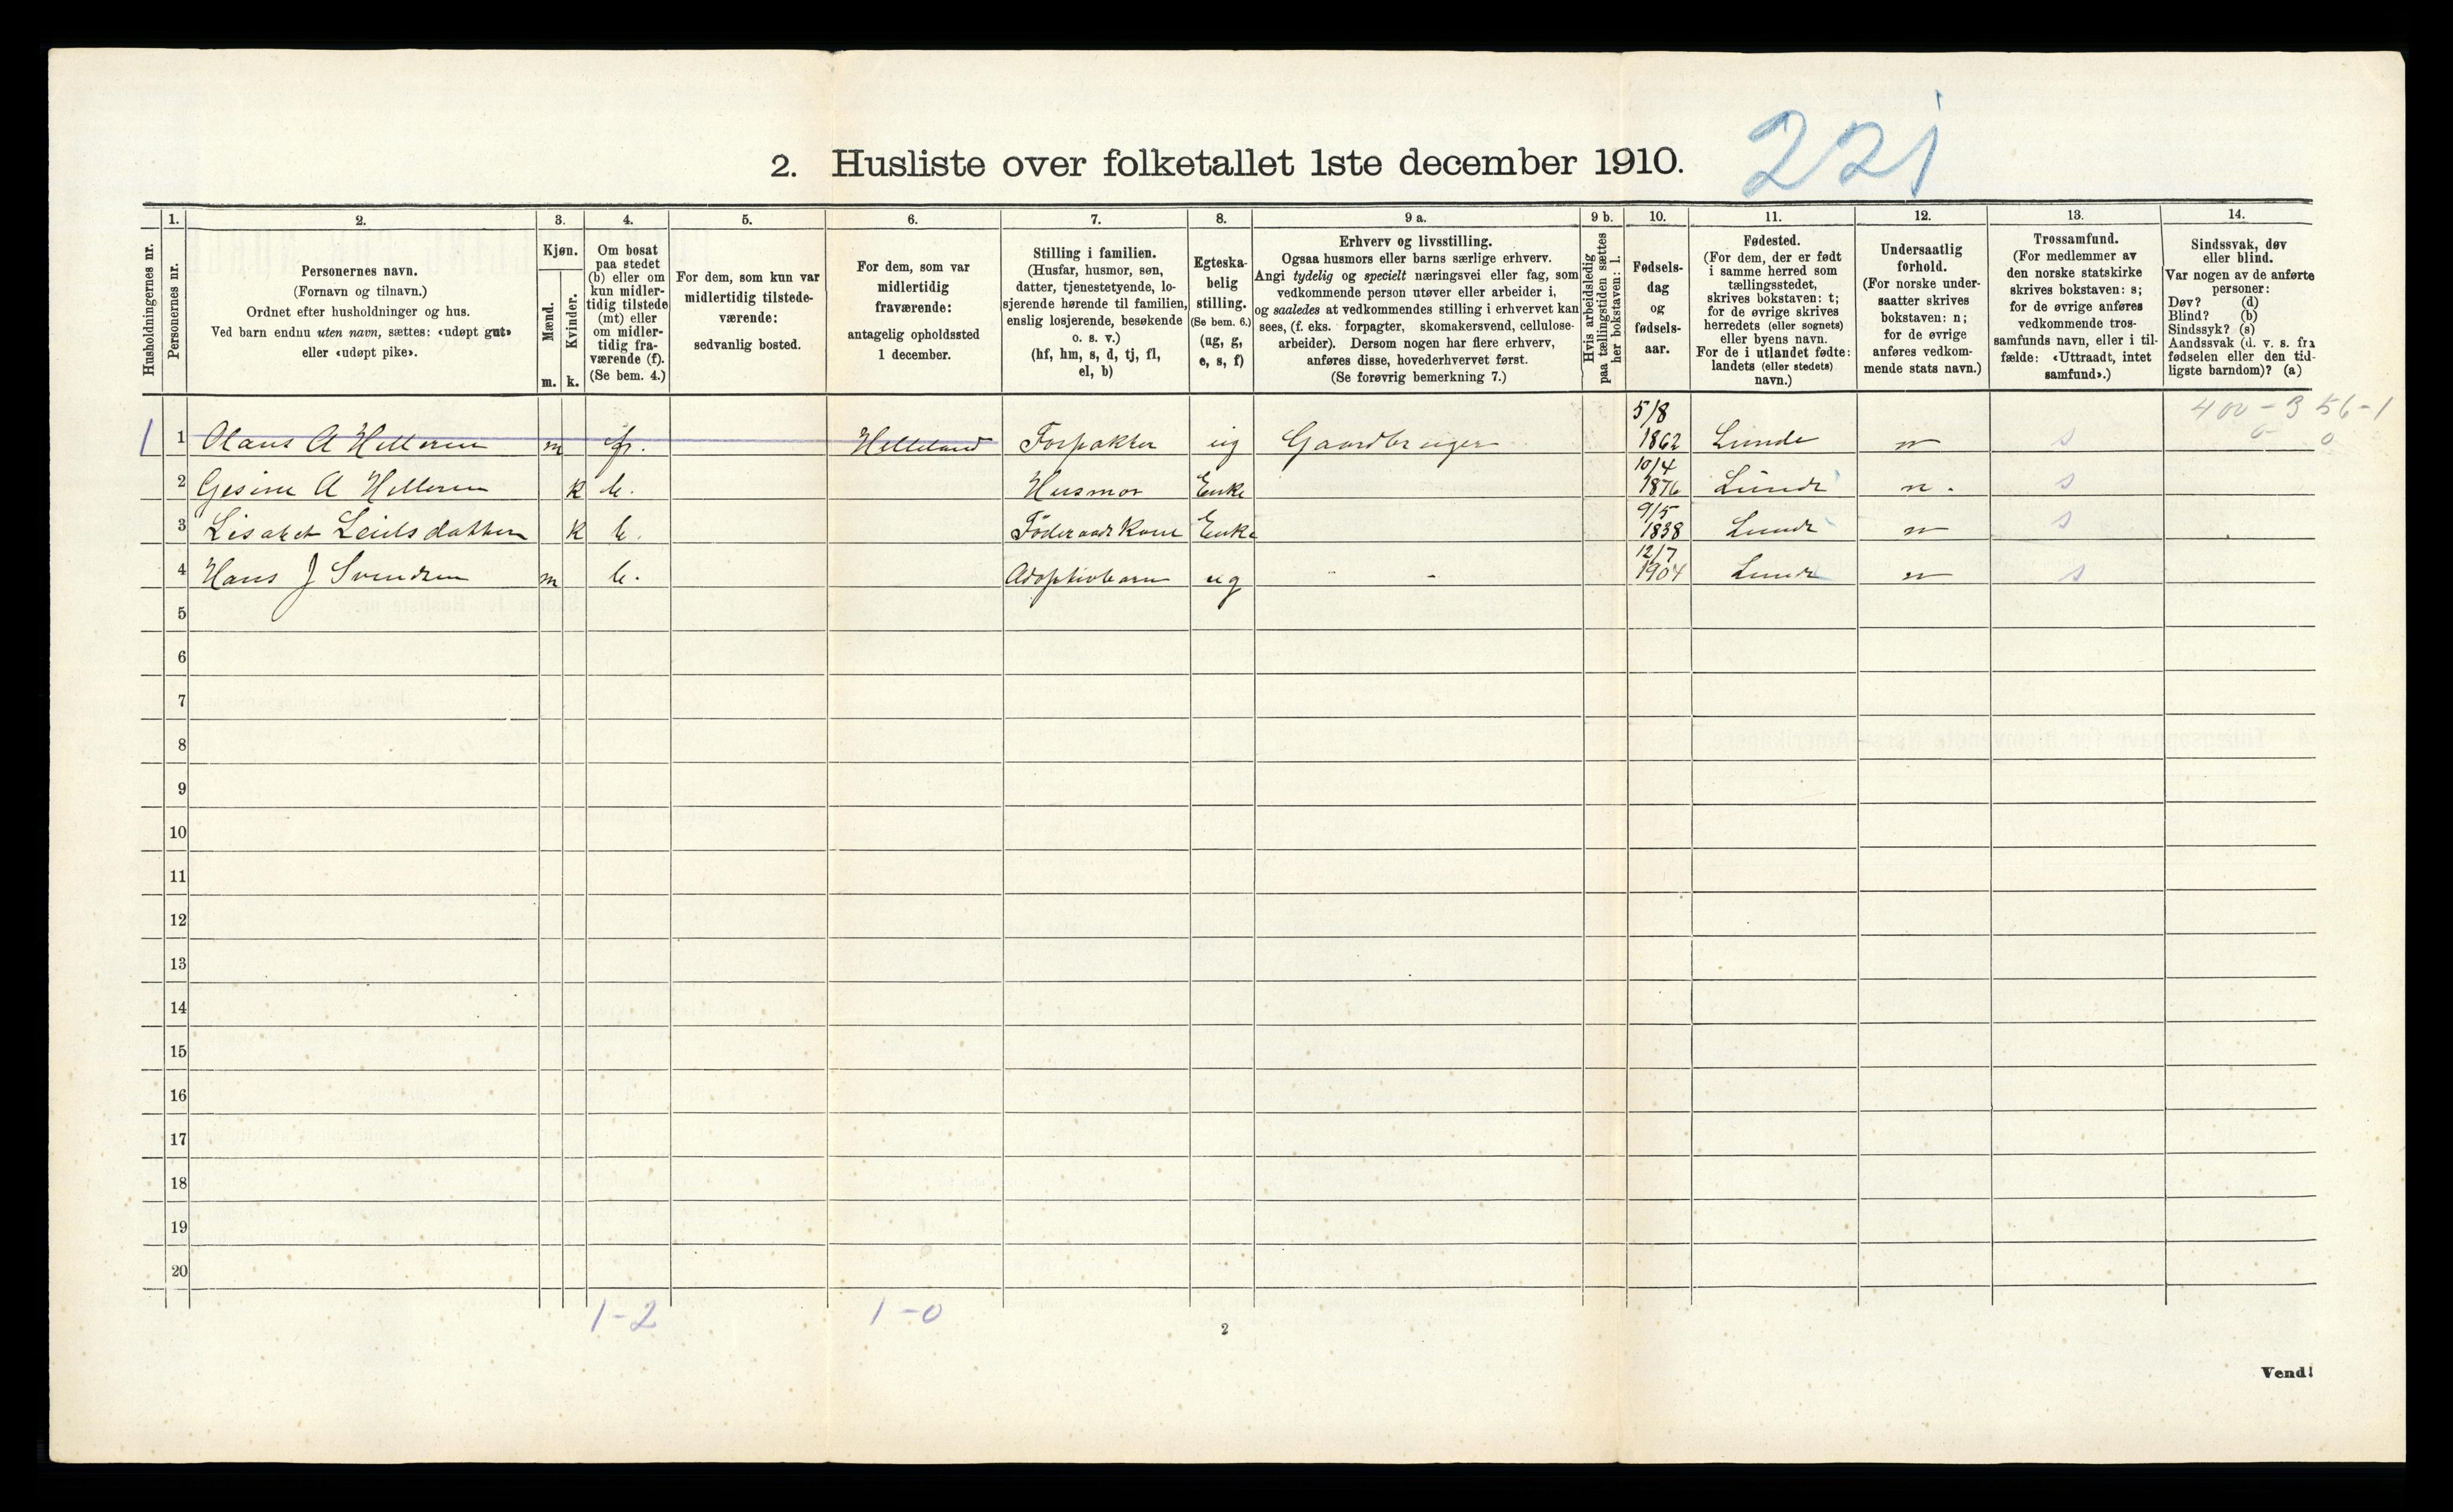 221
2. Husliste over folketallet 1ste december 1910.
Husholdningernes nr.
1.
Personernes nr.
2.
Personernes navn.
(Fornavn og tilnavn.)
Ordnet efter husholdninger og hus.
Ved barn endnu uten navn, sættes: «udøpt gut»
eller «udøpt pike».
3.
Kjøn.
Mænd.
Kvinder.
m. k.
4.
Om bosat
paa stedet
(b) eller om
kun midler-
tidig tilstede
(mt) eller
om midler-
tidig fra-
værende (f).
(Se bem. 4.)
5.
For dem, som kun var
midlertidig tilstede-
værende:
sedvanlig bosted.
6.
For dem, som var
midlertidig
fraværende:
antagelig opholdssted
1 december.
7.
Stilling i familien.
(Husfar, husmor, søn,
datter, tjenestetyende, lo-
sjerende hørende til familien,
enslig losjerende, besøkende
o. s. v.)
(hf, hm, s, d, tj, fl,
el, b)
8.
Egteska-
belig
stilling.
(Se bem. 6.)
(ug, g,
e, s, f)
9 a.
Erhverv og livsstilling.
Ogsaa husmors eller barns særlige erhverv.
Angi tydelig og specielt næringsvei eller fag, som
vedkommende person utøver eller arbeider i,
og saaledes at vedkommendes stilling i erhvervet kan
sees, (f. eks. forpagter, skomakersvend, cellulose-
arbeider). Dersom nogen har flere erhverv,
anføres disse, hovederhvervet først.
(Se forøvrig bemerkning 7.)
9 b.
Hvis arbeidsledig
paa tællingstiden sættes
her bokstaven: l.
10.
Fødsels-
dag
og
fødsels-
aar.
11.
Fødested.
(For dem, der er født
i samme herred som
tællingsstedet,
skrives bokstaven: t;
for de øvrige skrives
herredets (eller sognets)
eller byens navn.
For de i utlandet fødte:
landets (eller stedets)
navn.)
12.
Undersaatlig
forhold.
(For norske under-
saatter skrives
bokstaven: n;
for de øvrige
anføres vedkom-
mende stats navn.)
13.
Trossamfund.
(For medlemmer av
den norske statskirke
skrives bokstaven: s;
for de øvrige anføres
vedkommende tros-
samfunds navn, eller i til-
fælde: «Uttraadt, intet
samfund».)
14.
Sindssvak, døv
eller blind.
Var nogen av de anførte
personer:
Døv? (d)
Blind? (b)
Sindssyk? (s)
Aandssvak (d. v. s. fra
fødselen eller den tid-
ligste barndom)? (a)
400-356-1
0 0
1 1 Olaus A Helleren m f. Helleland Forpakter ug Gaardbruger 5/8 1862 Lunde n s
2 Gesine A Helleren k b. Husmor Enke 10/4 1876 Lunde n. s
3 Lisabet Leidsdatter k b. Föderaadskone Enke 9/5 1838 Lunde n s
4 Hans J Svendsen m b. Adoptivbarn ug - 12/7 1904 Lunde n s
5
6
7
8
9
10
11
12
13
14
15
16
17
18
19
20
1-2 1-0
2
Vend!